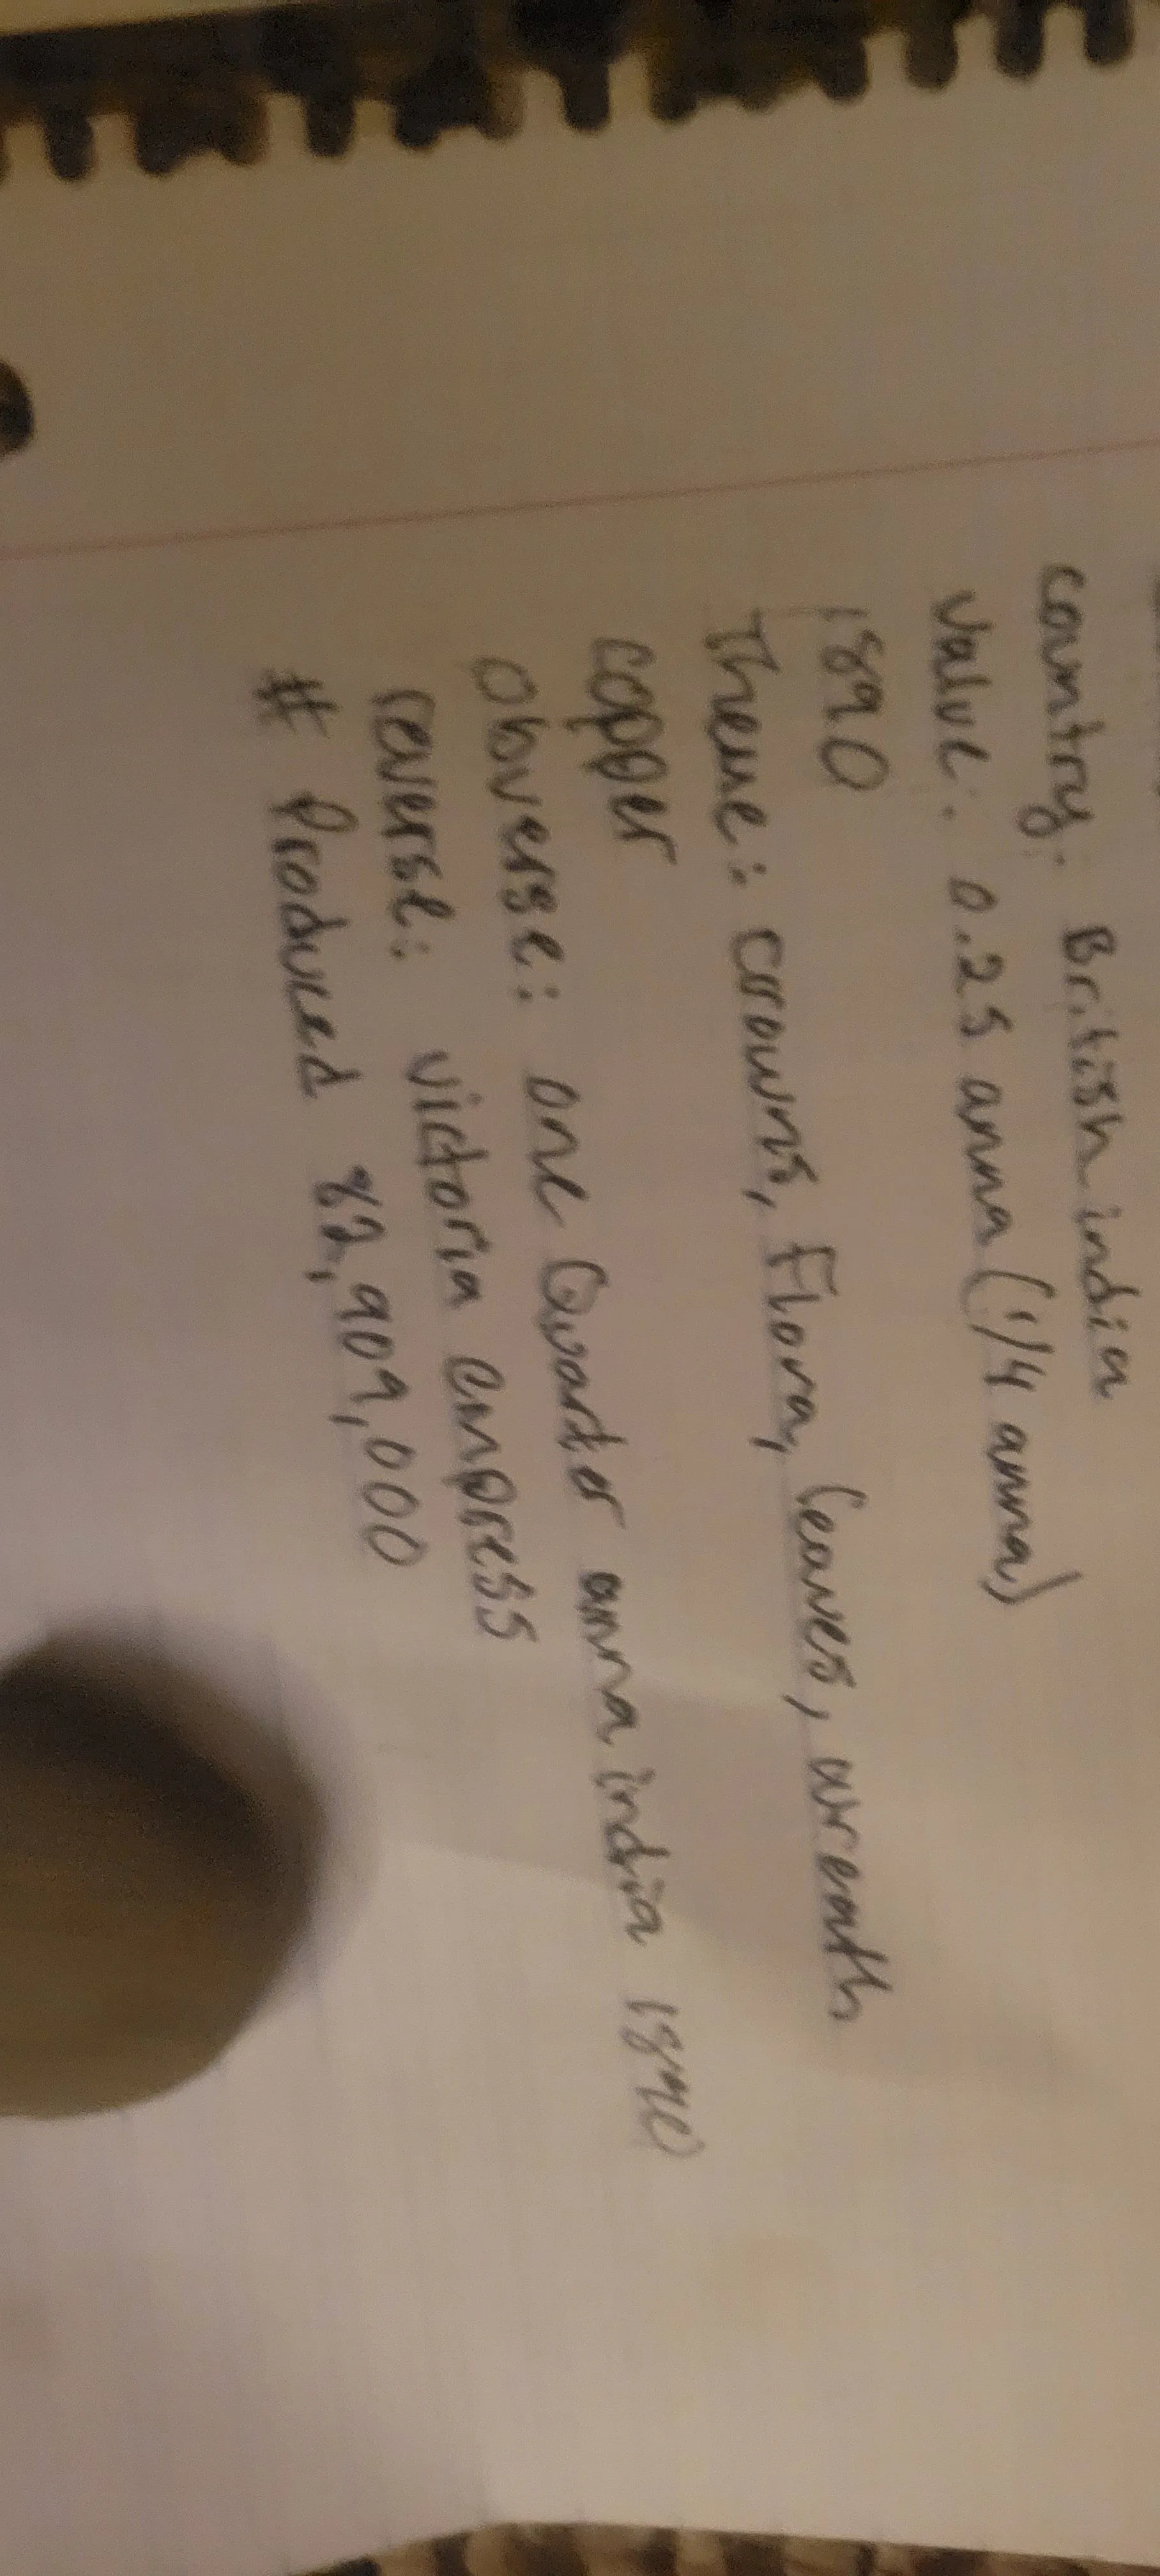 country: British india
value: 0.25 anna (1/4 anna)
1890
Theme: crowns, Flora, leaves, wreath
copper
Obverse: one Quarter anna india 1890
reverse: victoria empress
# Produced 82,909,000